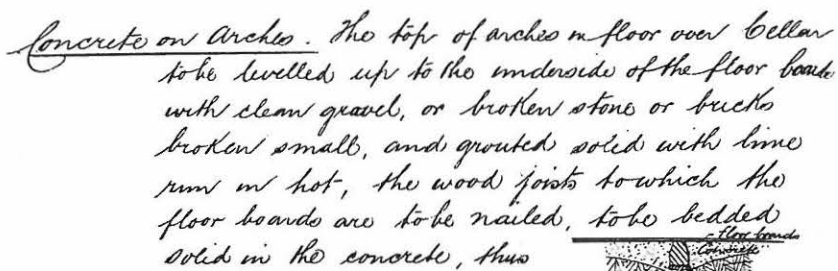 Concrete on Arches. The top of arches in floor over Cellar
to be levelled up to the underside of the floor boards
with clean gravel, or broken stone or bricks
broken small, and grouted solid with lime
run in hot, the wood joists to which the
floor boards are to be nailed, to be bedded
solid in the concrete, thus
floor boards
Concrete